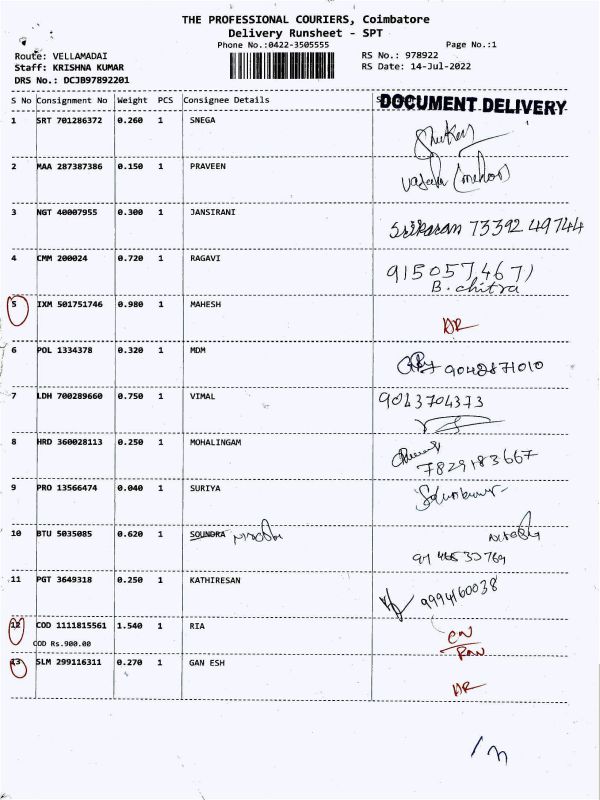 THE PROFESSIONAL COURIERS, Coimbatore
Delivery Runsheet - SPT
Phone No.:0422-3505555 Page No.:1
Route: VELLAMADAI RS No.: 978922
Staff: KRISHNA KUMAR RS Date: 14-Jul-2022
DRS No.: DCJB97892201
S No Consignment No Weight PCS Consignee Details
DOCUMENT DELIVERY
1 SRT 701286372 0.260 1 SNEGA
2 MAA 287387386 0.150 1 PRAVEEN
3 NGT 40007955 0.300 1 JANSIRANI
73392 49744
4 CMM 200024 0.720 1 RAGAVI
9150574671
B. chitra
5 IXM 501751746 0.980 1 MAHESH
DR
6 POL 1334378 0.320 1 MDM
9042871010
7 LDH 700289660 0.750 1 VIMAL
9043704373
8 HRD 360028113 0.250 1 MOHALINGAM
7829183667
9 PRO 13566474 0.040 1 SURIYA
10 BTU 5035085 0.620 1 SOUNDRA
11 PGT 3649318 0.250 1 KATHIRESAN
9994160038
12 COD 1111815561 1.540 1 RIA
COD Rs.900.00
13 SLM 299116311 0.270 1 GAN ESH
DR